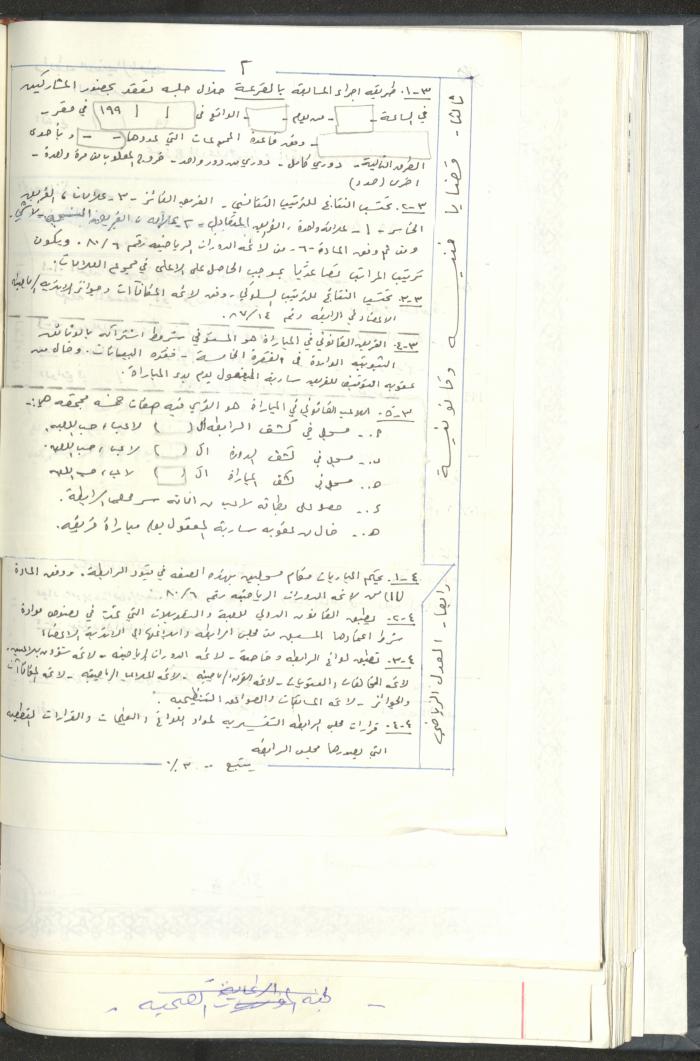 ٢
ثالثا - قضايا فنية وقانونية
٣-١. طريقه اجراء المسابقة بالقرعة خلال جلسه تعقد بحضور المشاركين
في الساعة - - من يوم - - الواقع في / / ١٩٩ في مقر -
- وفق قاعدة المجموعات التي عددها - - وبأحدى
الطرق التالية - دوري كامل - دوري من دور واحد - خروج المغلوب من مرة واحدة -
اخرى (حدد)
٣-٢. تحتسب النتائج للترتيب التنافسي - الفريق الفائز - ٣ - علامات، الفريق
الخاسر - ١ - علامة واحدة، الفريق المتعادل - ٢ علامه، الفريق المنسحب - لا شيء.
ومن ثم وفق المادة - ٦ - من لائحة الدورات الرياضيه رقم ٨٠/٦. ويكون
ترتيب المراتب تصاعديًا بموجب الحاصل على الاعلى في مجموع العلامات.
٣-٣. تحتسب النتائج للترتيب السلوكي، وفق لائحة المكافآت وجوائز الاندية الرياضية
الاعضاء في الرابطه رقم ٨٧/١٤.
٣-٤. الفريق القانوني في المباراة هو المستوفي شروط اشتراكه بالوثائق
الثبوتية الواردة في الفقرة الخامسة - فقره البيانات. وخال من
عقوبه التوقيف للفريق سارية المفعول يوم بدء المباراة.
٣-٥. اللاعب القانوني في المباراة هو الذي فيه صفات خمسه مجتمعه هي:-
أ.- مسجل في كشف الرابطه الـ ( ) لاعب، حسب اللعبه.
ب.- مسجل في كشف الدورة الـ ( ) لاعب، حسب اللعبه.
ج.- مسجل في كشف المباراة الـ ( ) لاعب، حسب اللعبه
د.- حصوله على بطاقه لاعب من امانه سر مجلس الرابطة.
هـ.- خال من عقوبه سارية المفعول يوم مباراة فريقه.
رابعا - العدل الرياضي
٤-١. يحكم المباريات حكام مسجلين بهذه الصفه في قيود الرابطة. ووفق المادة
(١١) من لائحة الدورات الرياضيه رقم ٨٠/٦.
٤-٢. يطبق القانون الدولي للعبة والتعديلات التي تمت في نصوص مواده
شرط اعتمادها المسبق من مجلس الرابطه وابلاغها الى الاندية الاعضاء
٤-٣. تطبق لوائح الرابطه وخاصة - لائحة الدورات الرياضيه - لائحة شؤون اللاعبين.
لائحة المخالفات والعقوبات - لائحة الرياضيه - لائحة الرياضيه - لائحة المكافآت
والجوائز - لائحة المسابقات والتنظيميه.
٤-٤. قرارات مجلس الرابطه التفسيريه لمواد اللوائح والتعليمات والقرارات القطعيه
التي يصدرها مجلس الرابطه
يتبع .. ٣٪
الرعاية
- لجنه الصحيه -